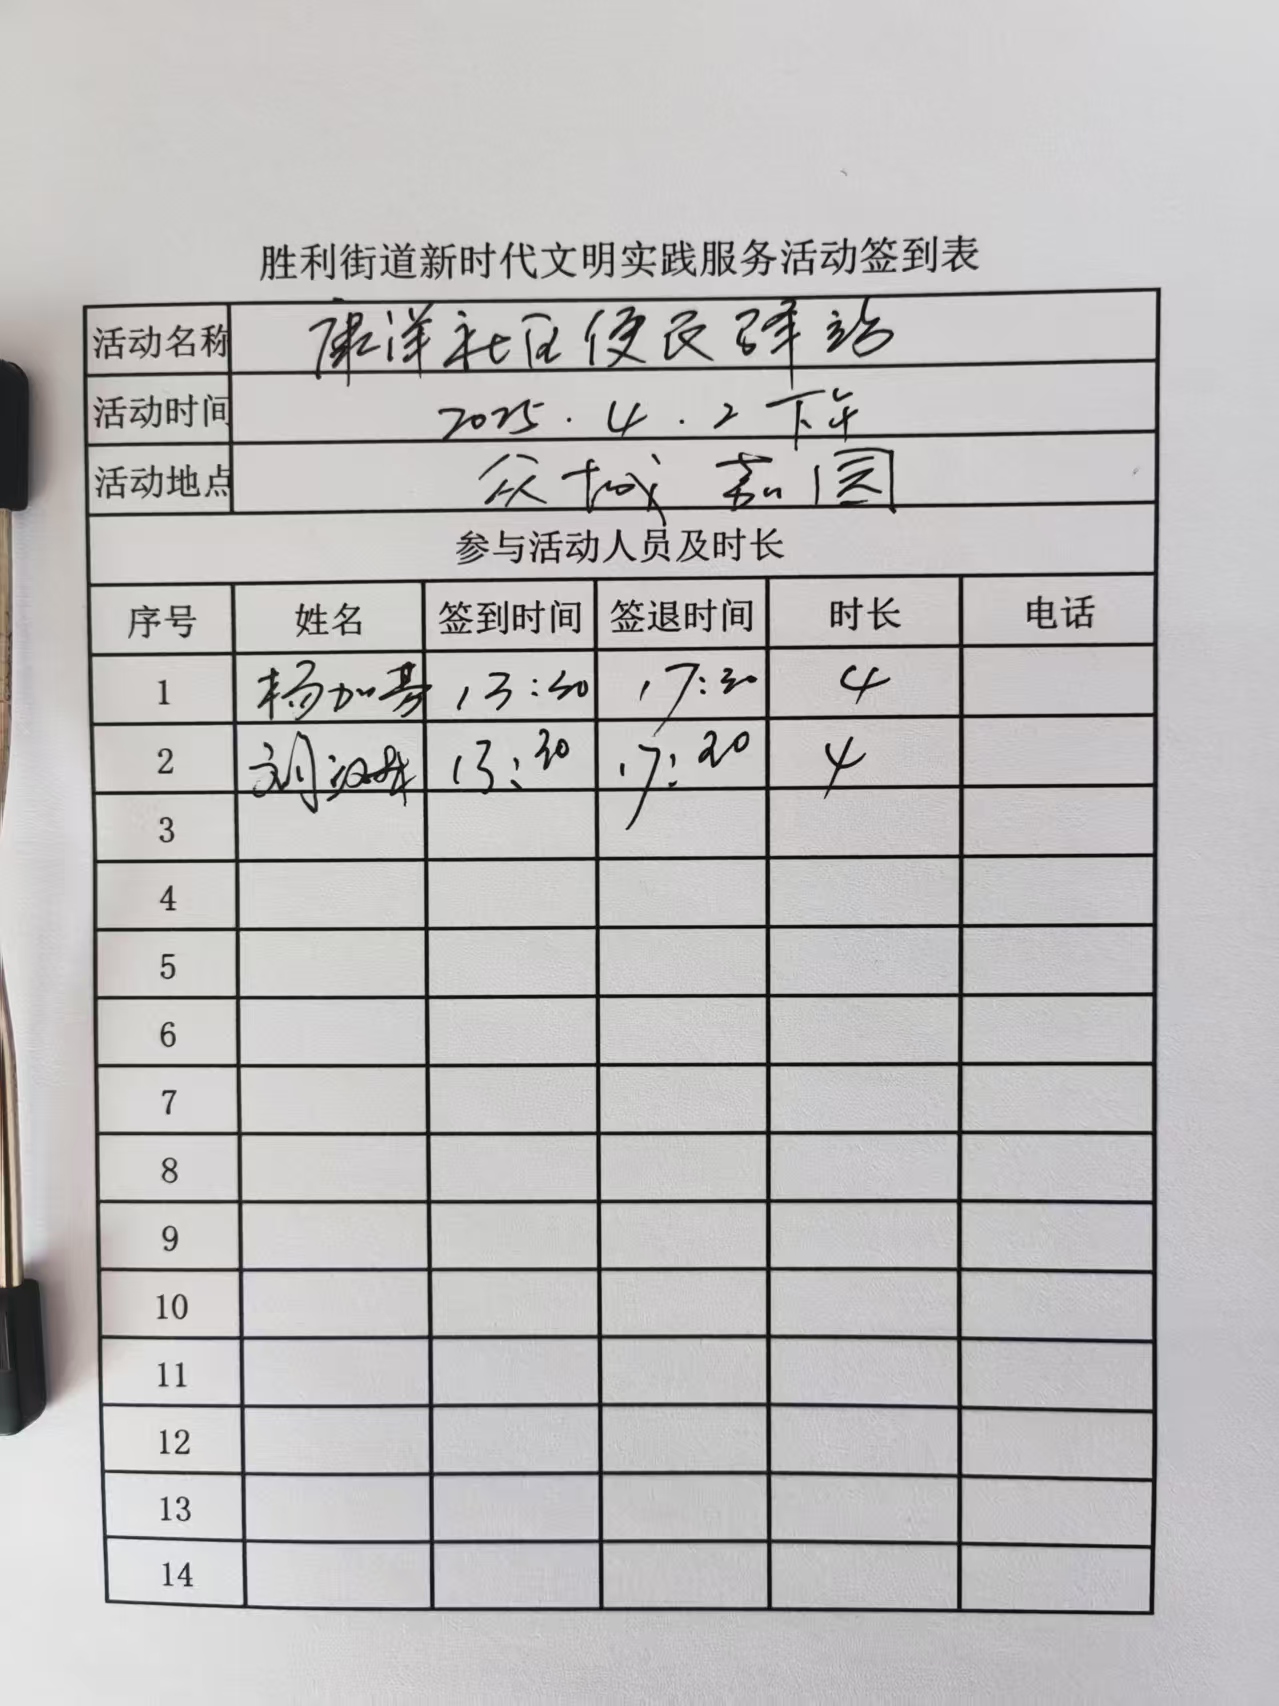 胜利街道新时代文明实践服务活动签到表
活动名称 康洋社区便民驿站
活动时间 2025.4.2 下午
活动地点 众城嘉园
参与活动人员及时长
序号 姓名 签到时间 签退时间 时长 电话
1 杨加 13:30 17:30 4
2 刘汉 13:30 17:30 4
3
4
5
6
7
8
9
10
11
12
13
14